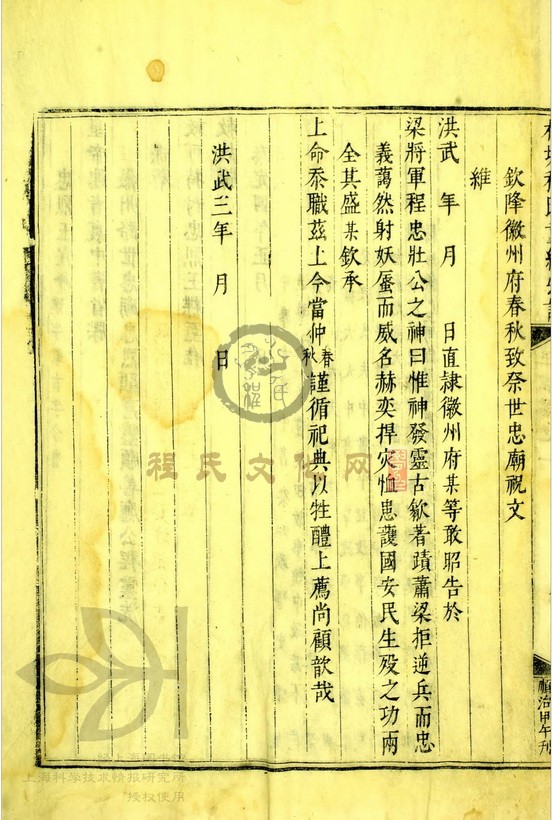 欽降徽州府春秋致祭世忠廟祝文
維
洪武 年 月 日直隸徽州府某等敢昭告於
梁將軍程忠壯公之神曰惟神發靈古歙著蹟蕭梁拒逆兵而忠
義藹然射妖蜃而威名赫奕捍灾恤患護國安民生殁之功兩
全其盛某欽承
上命忝職茲土今當仲春秋謹循祀典以牲醴上薦尚顧歆哉
洪武三年 月 日
順治甲午刊
程氏文化网
上海科学技术情报研究所
授权使用